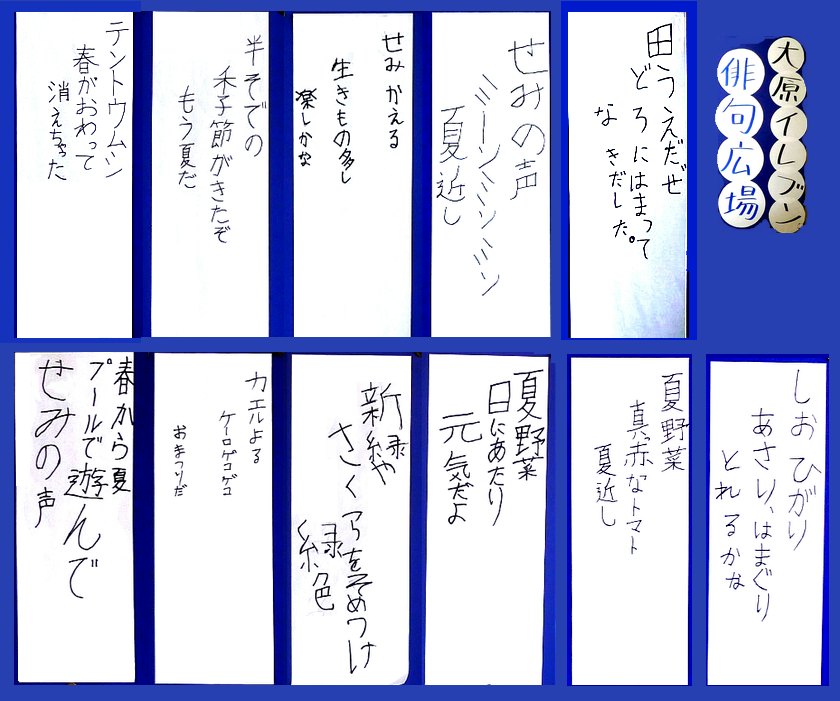 大原イレブン
俳句広場
田うえだぜ
どろにはまって
なきだした。
せみの声
ミーンミンミンミン
夏近し
せみかえる
生きもの多し
楽しかな
半そでの
季節がきたぞ
もう夏だ
テントウムシ
春がおわって
消えちゃった
しおひがり
あさり、はまぐり
とれるかな
夏野菜
真赤なトマト
夏近し
夏野菜
日にあたり
元気だよ
新緑や
さくらをそめつけ
緑色
カエルよる
ケーロゲコゲコ
おまつりだ
春から夏
プールで遊んで
せみの声